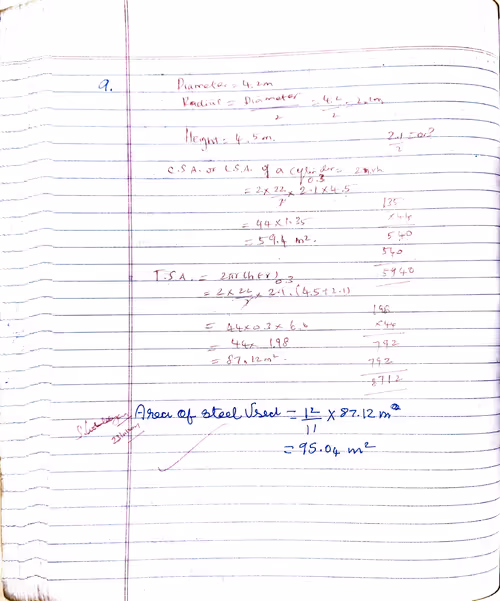 9.
Diameter = 4.2m
Radius = Diameter/2 = 4.2/2 = 2.1m
Height = 4.5m.
2.1/7 = 0.3
C.S.A. or L.S.A. of a cylinder = 2πrh
= 2 × 22/7 × 2.1 × 4.5
0.3
= 44 × 1.35
= 59.4 m².
135
×44
540
540
5940
T.S.A. = 2πr(h+r)
= 2 × 22/7 × 2.1 . (4.5+2.1)
0.3
= 44 × 0.3 × 6.6
= 44 × 1.98
= 87.12m².
198
×44
792
792
8712
Area of steel Used = 12/11 × 87.12 m²
= 95.04 m²